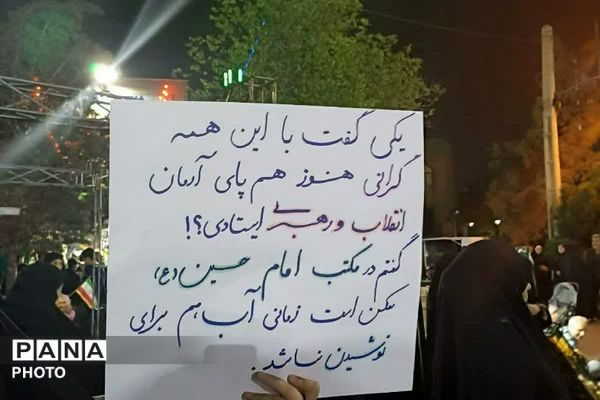 یکی گفت با این همه
گرانی هنوز هم پای آرمان
انقلاب و رهبری ایستادی؟!
گفتم در مکتب امام حسین(ع)،
ممکن است زمانی آب هم برای
نوشیدن نباشد.
PANA
PHOTO